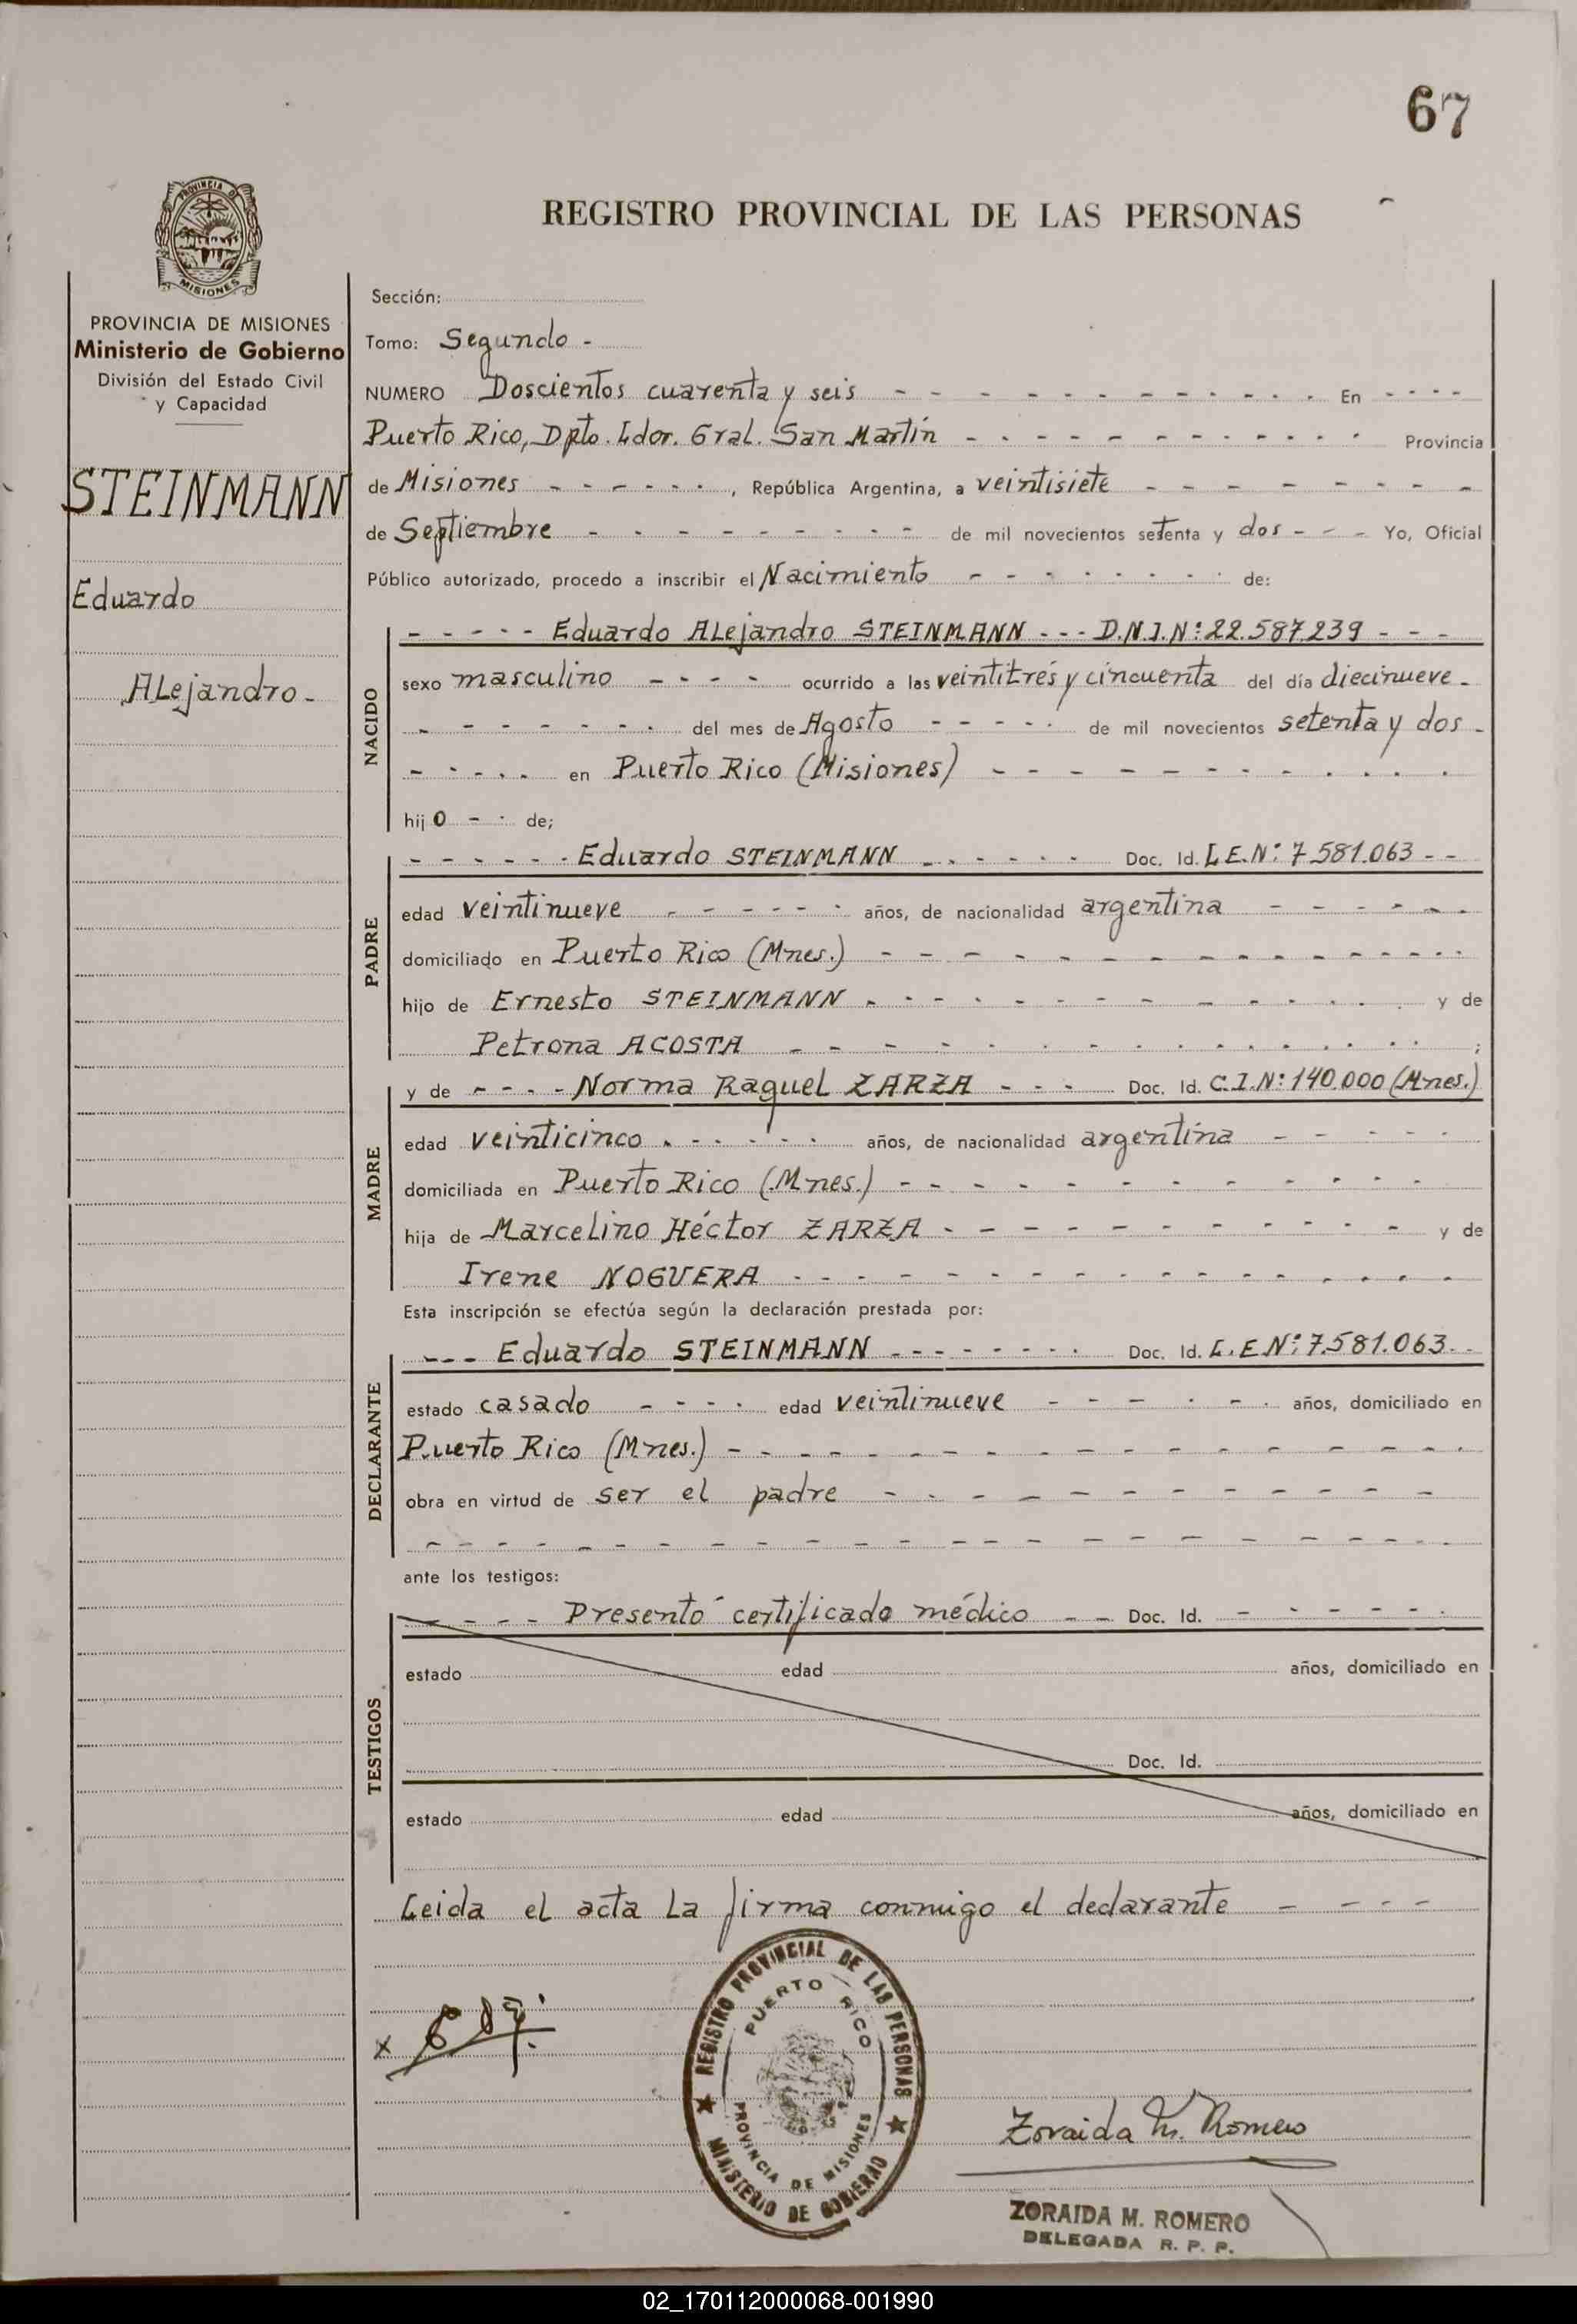 67
PROVINCIA DE
MISIONES
REGISTRO PROVINCIAL DE LAS PERSONAS
PROVINCIA DE MISIONES
Ministerio de Gobierno
División del Estado Civil
y Capacidad
STEINMANN
Eduardo
ALejandro -
Sección:
Tomo: Segundo -
NUMERO Doscientos cuarenta y seis - - - - - - - - - - En - - - -
Puerto Rico, Dpto. Ldor. Gral. San Martín - - - - - - - - - - Provincia
de Misiones - - - - - -, República Argentina, a veintisiete - - - - - - - -
de Septiembre - - - - - - - - de mil novecientos setenta y dos - - - Yo, Oficial
Público autorizado, procedo a inscribir el Nacimiento - - - - - - - - de:
NACIDO
- - - - - Eduardo ALejandro STEINMANN - - - D.N.I.Nº: 22.587.239 - - -
sexo masculino - - - - ocurrido a las veintitrés y cincuenta del día diecinueve -
- - - - - - - del mes de Agosto - - - - - de mil novecientos setenta y dos -
- - - - - en Puerto Rico (Misiones) - - - - - - - - - - -
hijo - - de;
PADRE
- - - - - - Eduardo STEINMANN - - - - - - Doc. Id. L.E.Nº: 7.581.063 - -
edad veintinueve - - - - - - años, de nacionalidad argentina - - - - - -
domiciliado en Puerto Rico (Mnes.) - - - - - - - - - - - - - -
hijo de Ernesto STEINMANN - - - - - - - - - - - - - y de
Petrona ACOSTA - - - - - - - - - - - - - - ;
MADRE
y de - - - - Norma Raquel ZARZA - - - Doc. Id. C.I.Nº: 140.000 (Mnes.)
edad veinticinco - - - - - - años, de nacionalidad argentina - - - - -
domiciliada en Puerto Rico (Mnes.) - - - - - - - - - - - -
hija de Marcelino Héctor ZARZA - - - - - - - - - - - y de
Irene NOGUERA - - - - - - - - - - - - - - -
Esta inscripción se efectúa según la declaración prestada por:
DECLARANTE
- - - Eduardo STEINMANN - - - - - - - - Doc. Id. L.E.Nº: 7.581.063 - -
estado casado - - - - edad veintinueve - - - - - - años, domiciliado en
Puerto Rico (Mnes.) - - - - - - - - - - - - - - - - -
obra en virtud de ser el padre - - - - - - - - - - - - -
- - - - - - - - - - - - - - - - - - - - - - -
ante los testigos:
TESTIGOS
- - - - Presentó certificado médico - - Doc. Id. - - - - - -
estado edad años, domiciliado en
Doc. Id.
estado edad años, domiciliado en
Leida el acta La firma conmigo el declarante - - - -
REGISTRO PROVINCIAL DE LAS PERSONAS
PUERTO RICO
PROVINCIA DE MISIONES
MINISTERIO DE GOBIERNO
Zoraida M. Romero
ZORAIDA M. ROMERO
DELEGADA R. P. P.
02_170112000068-001990